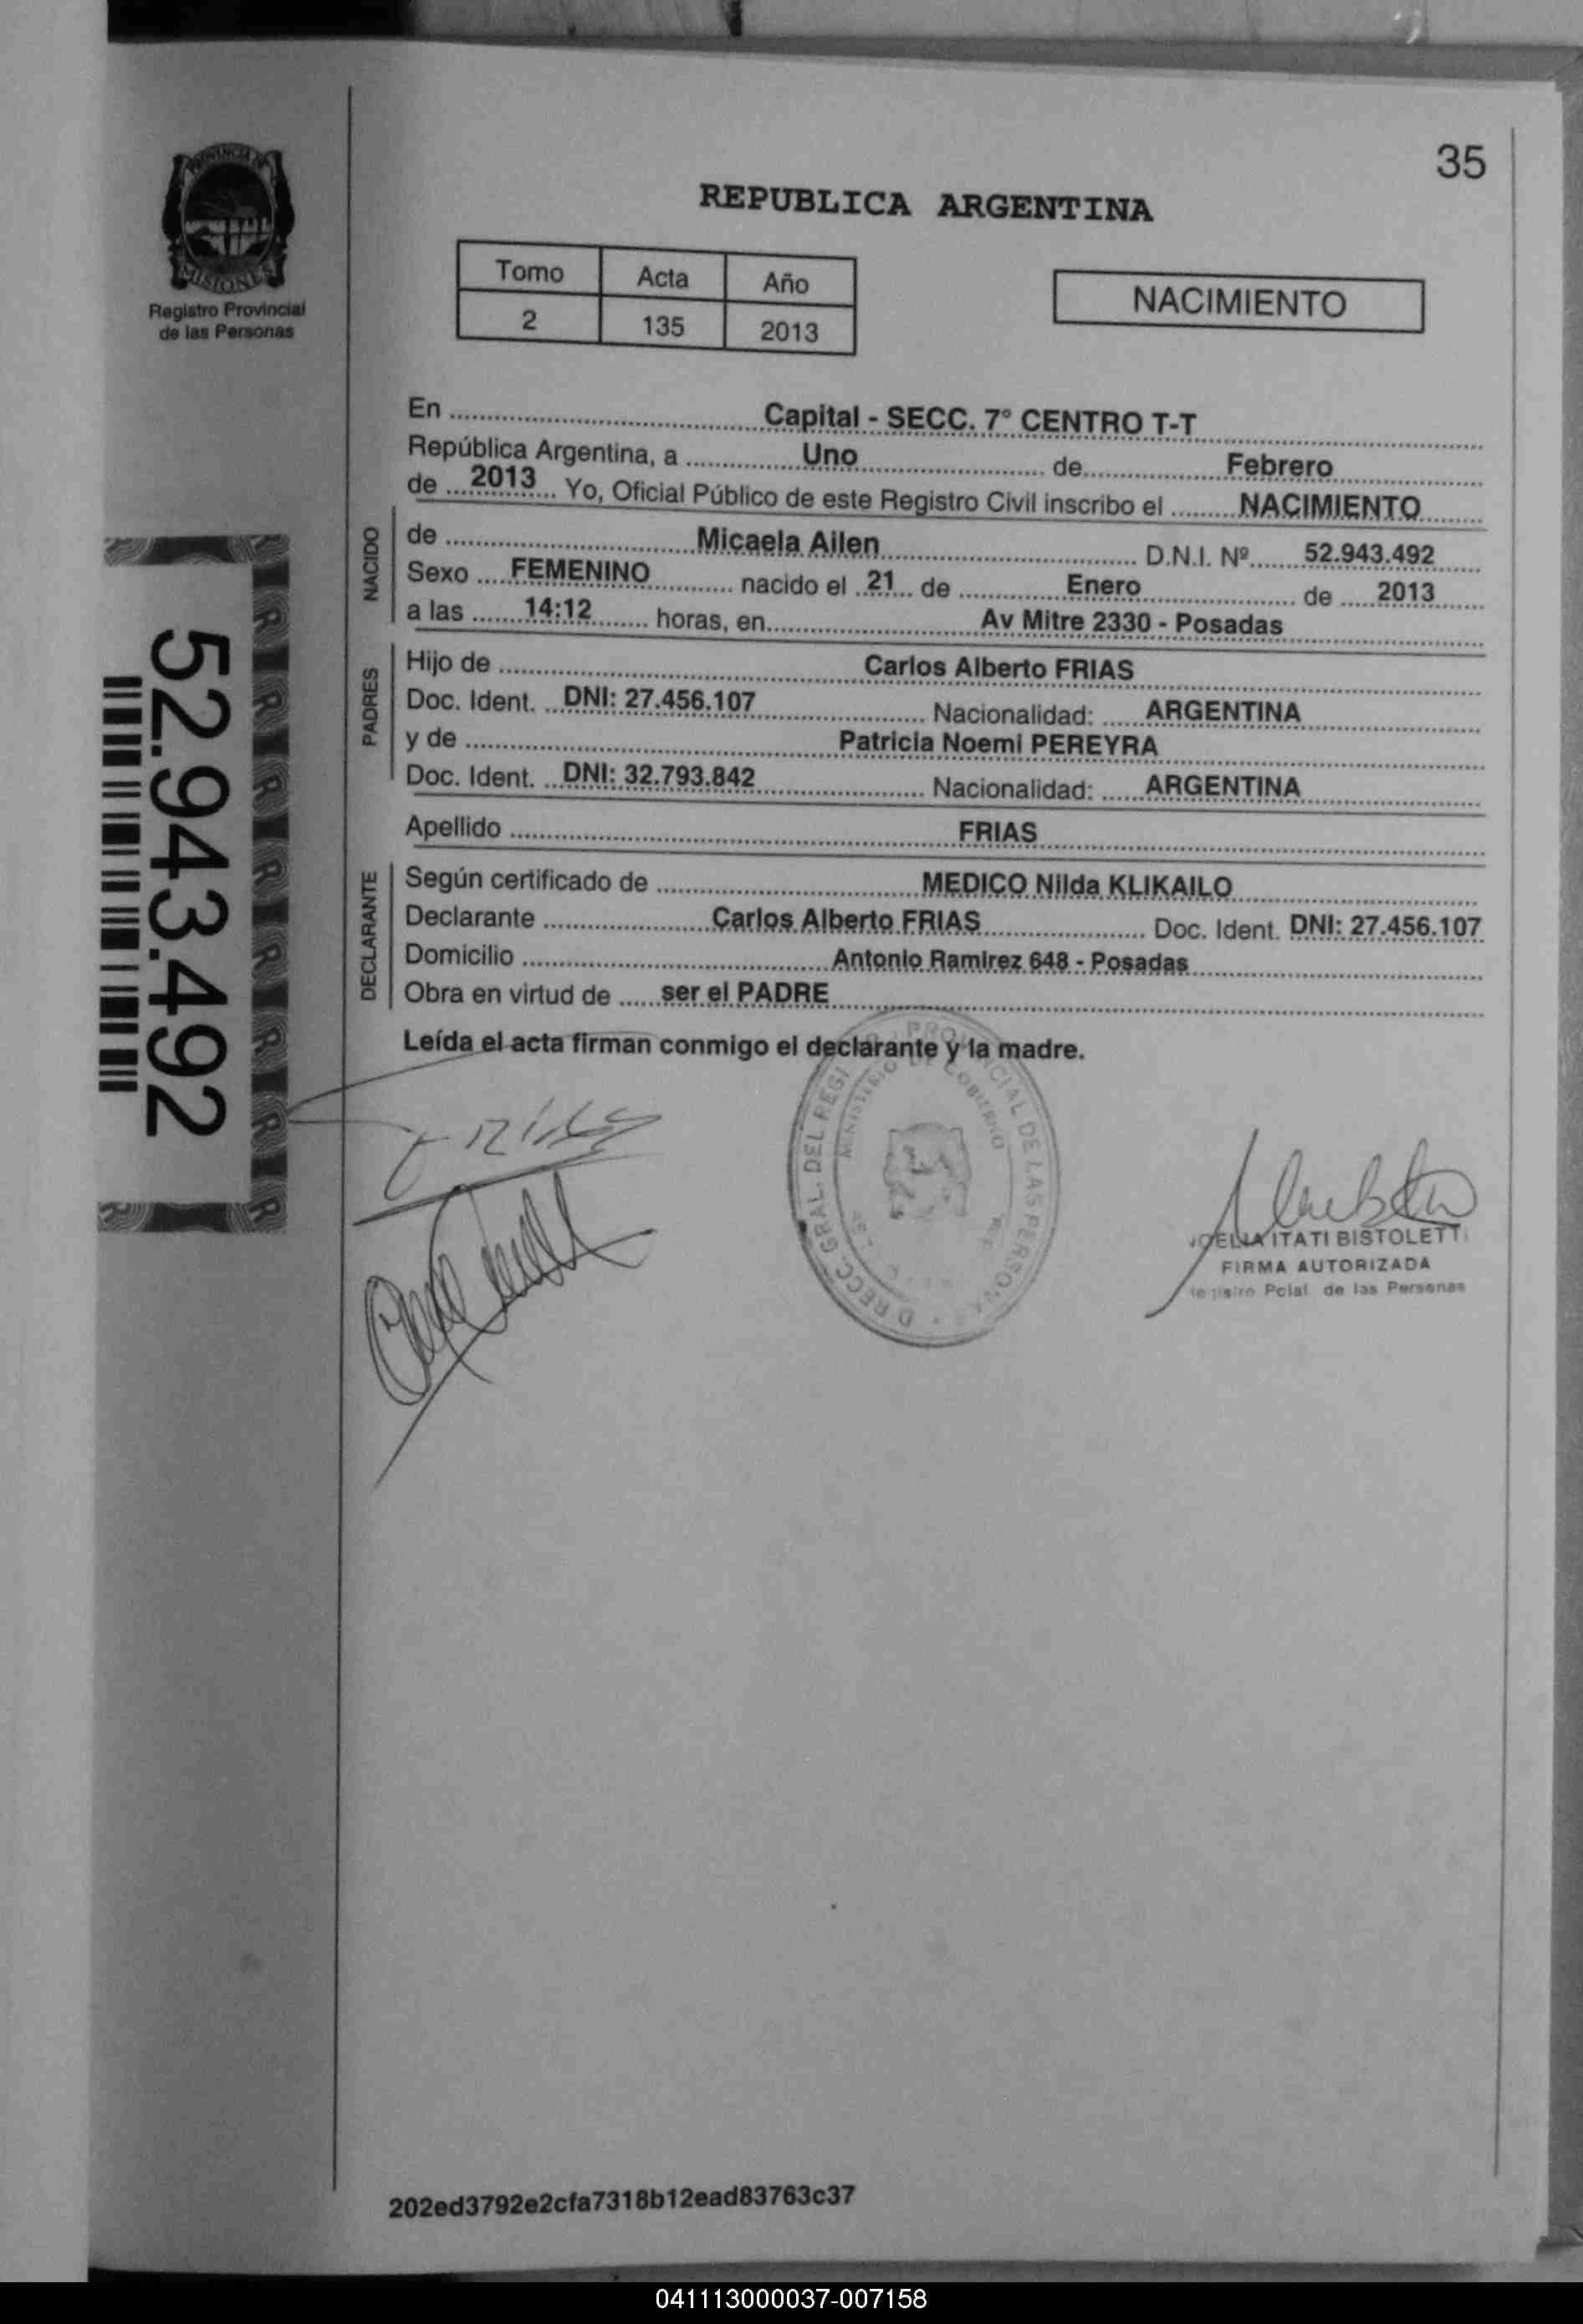 35
REPUBLICA ARGENTINA
PROVINCIA DE
MISIONES
Registro Provincial
de las Personas
Tomo Acta Año
2 135 2013
NACIMIENTO
En Capital - SECC. 7° CENTRO T-T
República Argentina, a Uno de Febrero
de 2013 Yo, Oficial Público de este Registro Civil inscribo el NACIMIENTO
NACIDO
de Micaela Ailen D.N.I. Nº 52.943.492
Sexo FEMENINO nacido el 21 de Enero de 2013
a las 14:12 horas, en Av Mitre 2330 - Posadas
PADRES
Hijo de Carlos Alberto FRIAS
Doc. Ident. DNI: 27.456.107 Nacionalidad: ARGENTINA
y de Patricia Noemi PEREYRA
Doc. Ident. DNI: 32.793.842 Nacionalidad: ARGENTINA
Apellido FRIAS
DECLARANTE
Según certificado de MEDICO Nilda KLIKAILO
Declarante Carlos Alberto FRIAS Doc. Ident. DNI: 27.456.107
Domicilio Antonio Ramirez 648 - Posadas
Obra en virtud de ser el PADRE
Leída el acta firman conmigo el declarante y la madre.
52.943.492
GRAL. DEL REGI PROVINCIAL DE LAS PERSONAS
MINISTERIO DE GOBIERNO
ITATI BISTOLETTI
FIRMA AUTORIZADA
Pcial. de las Personas
202ed3792e2cfa7318b12ead83763c37
041113000037-007158